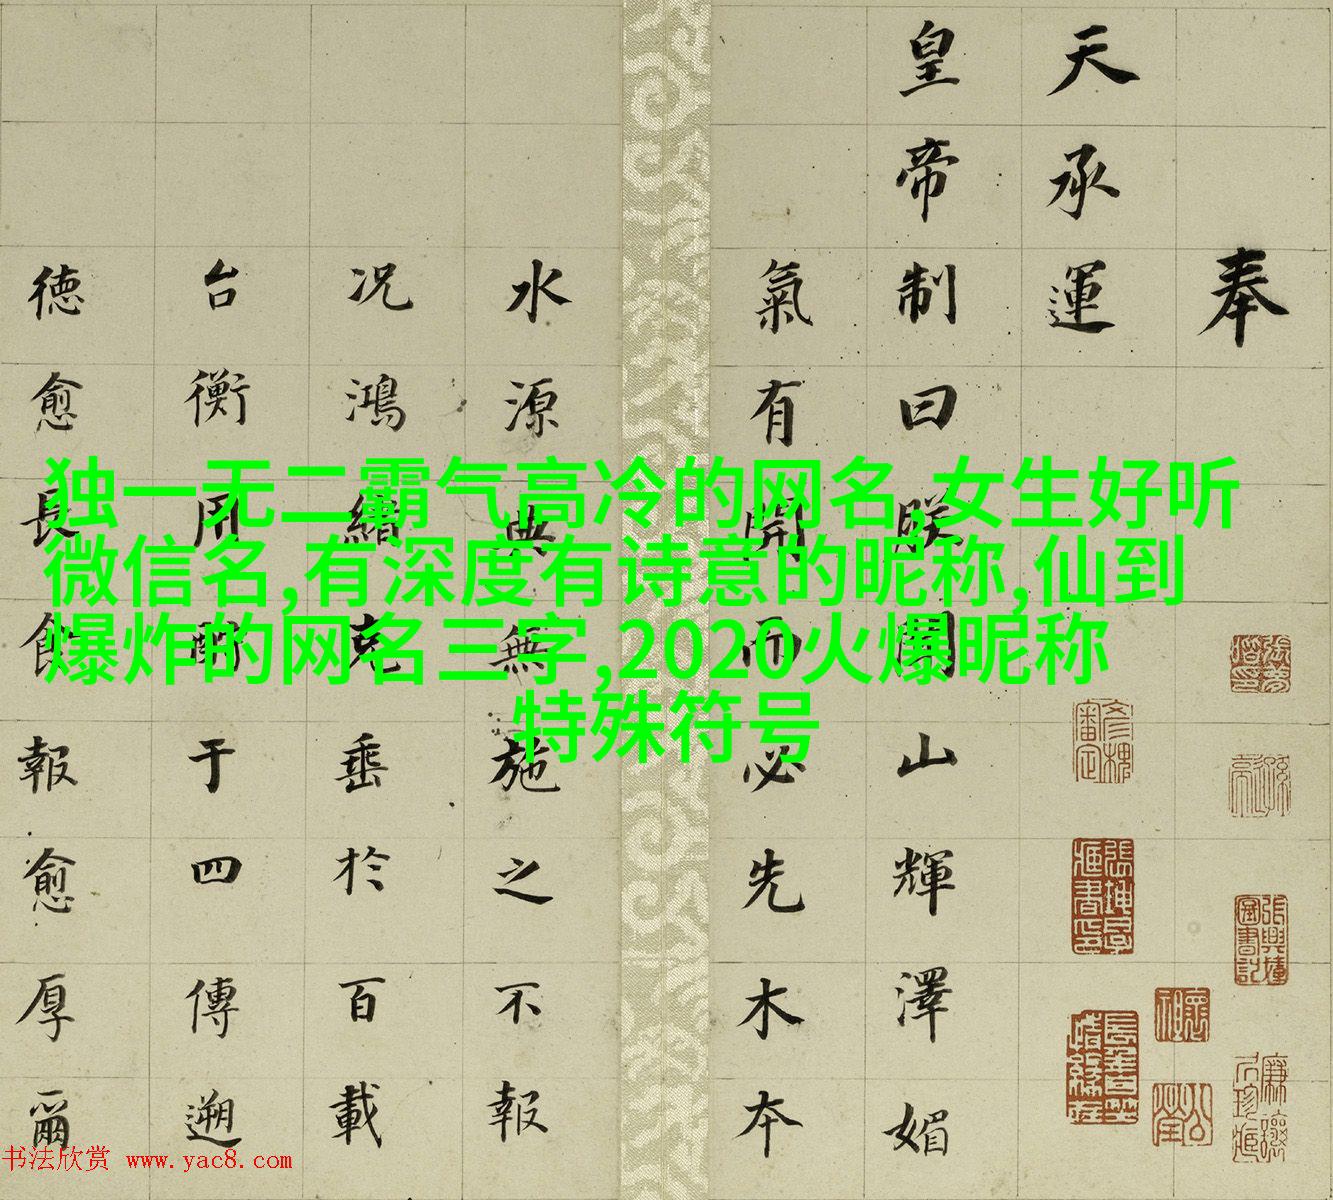 奉
天承運
皇帝制曰朕聞山輝澤媚
氣有開而必先木本
水源典無施之不報
况鴻緒克垂於百載
台衡用酬于四傳遡
德愈長食報愈厚爾
独一无二霸气高冷的网名,女生好听
微信名,有深度有诗意的昵称,仙到
爆炸的网名三字,2020火爆昵称
特殊符号
书法欣赏 www.yac8.com